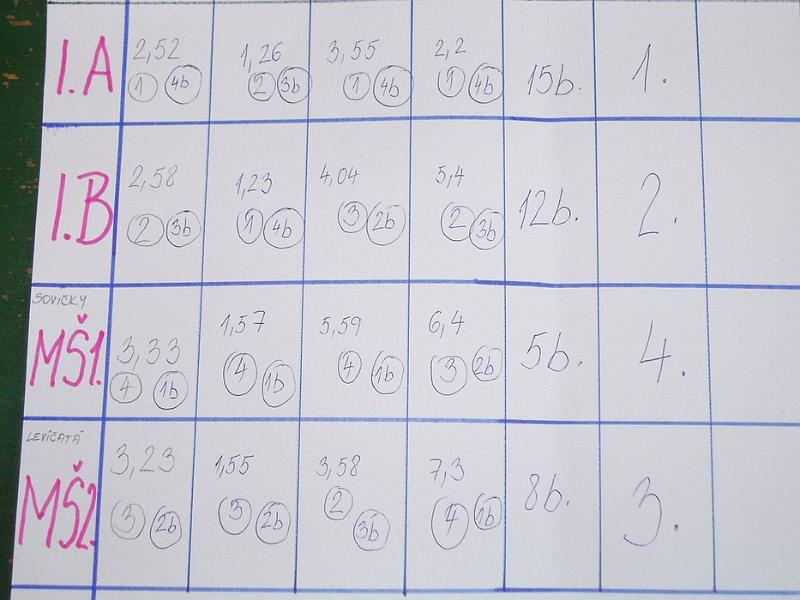 I.A 2,52 1,26 3,55 2,2 15b. 1.
1 4b 2 3b 1 4b 1 4b
I.B 2,58 1,23 4,04 5,4 12b. 2.
2 3b 1 4b 3 2b 2 3b
SOVIČKY
MŠ1. 3,33 1,57 5,59 6,4 5b. 4.
4 1b 4 1b 4 1b 3 2b
LEVÍČATÁ
MŠ2. 3,23 1,55 3,58 7,3 8b. 3.
3 2b 3 2b 2 3b 4 1b